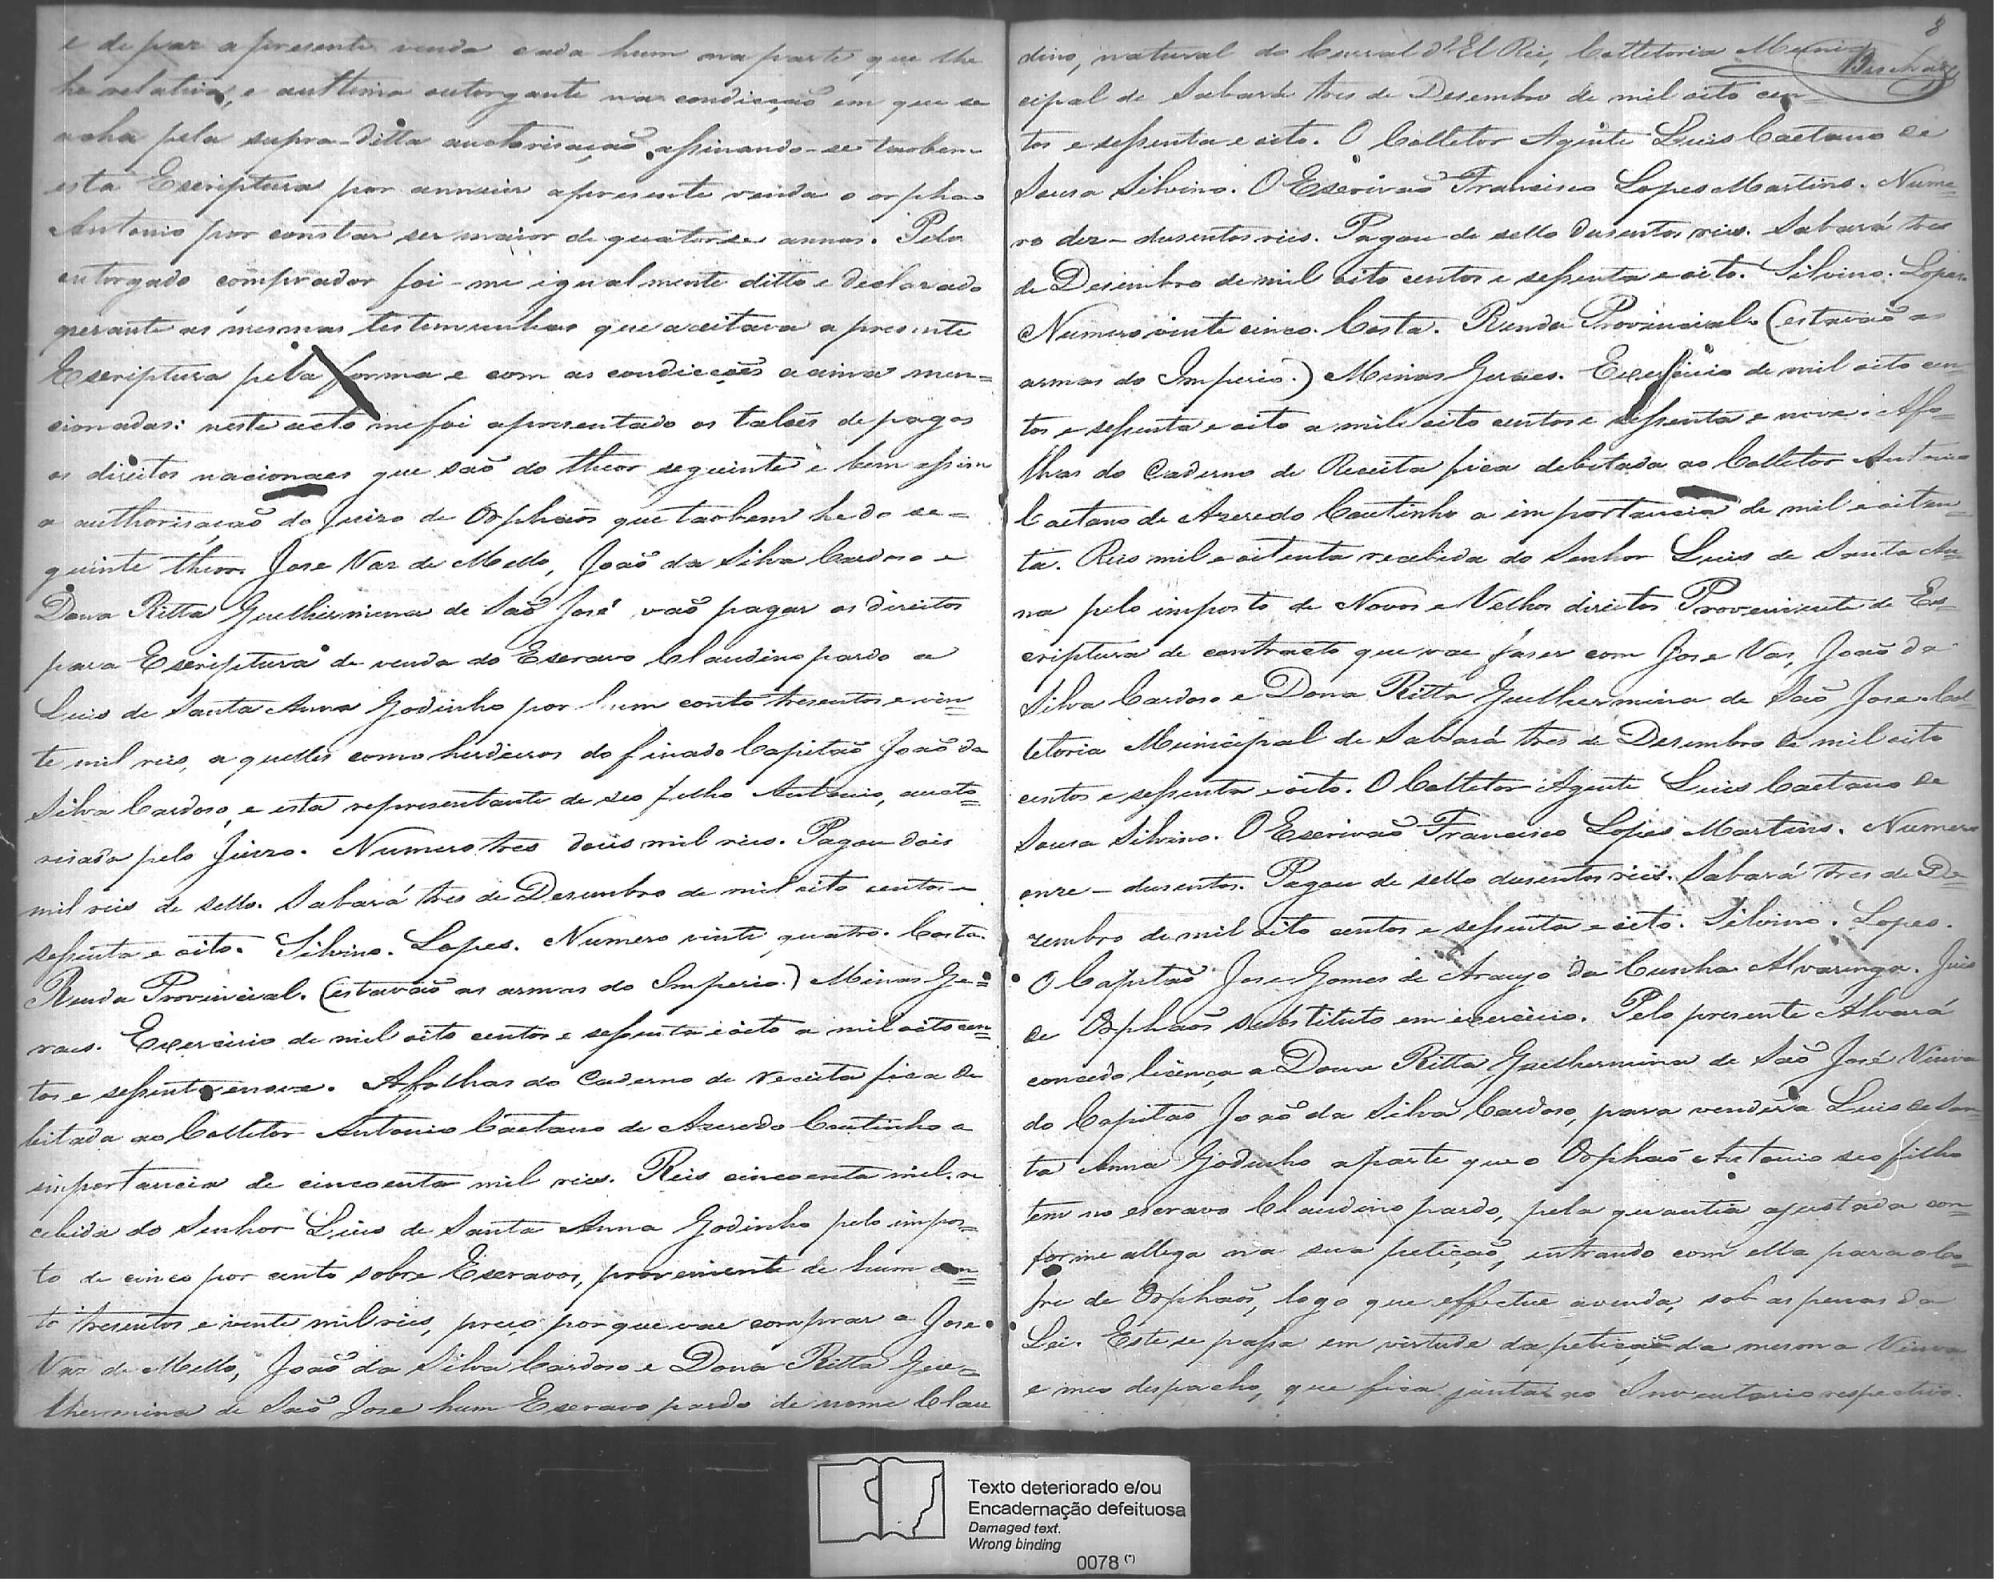 e de paz a presente venda cada hum na parte que lhe
he relativa, e aulttima outorgante na condicção em que se
acha pela supra-ditta auctorisação, assinando-se taobem
esta Escriptura por annuir apresente venda o orphao
Antonio por constar ser maior de quatorse annos. Pelo
outorgado comprador foi-me igualmente ditto e declarado
perante as mesmas testemunhas que aceitava a presente
Escriptura pela forma e com as condicções acima men=
cionadas: neste acto me foi apresentado os talões de pagos
os direitos nacionaes que são do theor seguinte e bem assim
a authorisação do Juizo de Orphaõs que taobem he do se=
guinte theor. Jose Vaz de Mello, João da Silva Cardoso e
Dona Ritta Guelhermina de São José vaõ pagar os direitos
para Escriptura de venda do Escravo Claudino pardo a
Luis de Santa Anna Godinho por hum conto tresentos e vin=
te mil reis, aquelles como herdeiros do finado Capitaõ João da
Silva Cardoso, e esta representante de seo filho Antonio, aucto=
risada pelo Juizo. Numero tres dous mil reis. Pagou dois
mil reis de sello. Sabará tres de Desembro de mil oito centos e
sessenta e oito. Silvino. Lopes. Numero vinte quatro. Costa.
Renda Provincial. (estavaõ as armas do Imperio.) Minas Ge=
raes. Exercicio de mil oito centos e sessenta e oito a mil oito cen
tos e sessenta e nove. Afolhas do Caderno de receita fica de
bitada ao Colletor Antonio Caetano de Azeredo Coutinho a
importancia de cincoenta mil reis. Reis cincoenta mil. re
cebida do Senhor Luis de Santa Anna Godinho pelo impos=
to de cinco por cento sobre Escravos, proveniente de hum con=
to tresentos e vinte mil reis, preço porque vae comprar a Jose
Vaz de Mello, João da Silva Cardoso e Dona Ritta Gue=
lhermina de São Jose hum Escravo pardo de nome Clau
8
dino, natural do Curral d'El Rei, Colletoria Muni=
cipal de Sabará tres de Desembro de mil oito cen=
tos e sessenta e oito. O Colletor Agente Luis Caetano de
Sousa Silvino. O Escrivaõ Francisco Lopes Martins. Nume=
ro dez - dusentos reis. Pagou de sello dusentos reis. Sabará tres
de Desembro de mil oito centos e sessenta e oito. Silvino. Lopes.
Numero vinte cinco. Costa. Renda Provincial. (estavaõ as
armas do Imperio.) Minas Geraes. Exercicio de mil oito cen=
tos e sessenta e oito a mil oito centos e sessenta e nove. Afo=
lhas do Caderno de Receita fica debitada ao Colletor Antonio
Caetano de Azeredo Coutinho a importancia de mil e oiten=
ta. Reis mil e oitenta recebida do Senhor Luis de Santa An=
na pelo imposto de Novos e Velhos direitos Proveniente de Es=
criptura de contracto que vae faser com Jose Vas, João da
Silva Cardoso e Dona Ritta Guelhermina de São Jose. Col=
letoria Municipal de Sabará tres de Dezembro de mil oito
centos e sessenta e oito. O Colletor Agente Luis Caetano de
Sousa Silvino. O Escrivaõ Francisco Lopes Martins. Numero
onze - dusentos. Pagou de sello dusentos reis. Sabará tres de De=
zembro de mil oito centos e sessenta e oito. Silvino. Lopes.
O Capitaõ Jose Gomes de Araujo da Cunha Alvarenga. Juis
de Orphaõs substituto em exercicio. Pelo presente Alvará
concedo licença a Dona Ritta Guelhermina de São José Viuva
do Capitaõ João da Silva Cardoso, para vender a Luis de San=
ta Anna Godinho aparte que o Orphaõ Antonio seo filho
tem no escravo Claudino pardo, pela quantia ajustada con=
forme allega na sua petiçaõ, entrando com ella para o co=
fre de Orphaõs, logo que effectue a venda, sob as penas da
Lei. Este se passa em virtude da petiçaõ da mesma Viuva
e meo despacho, que fica junta ao Inventario respectivo.
Texto deteriorado e/ou
Encadernação defeituosa
Damaged text.
Wrong binding
0078 (*)